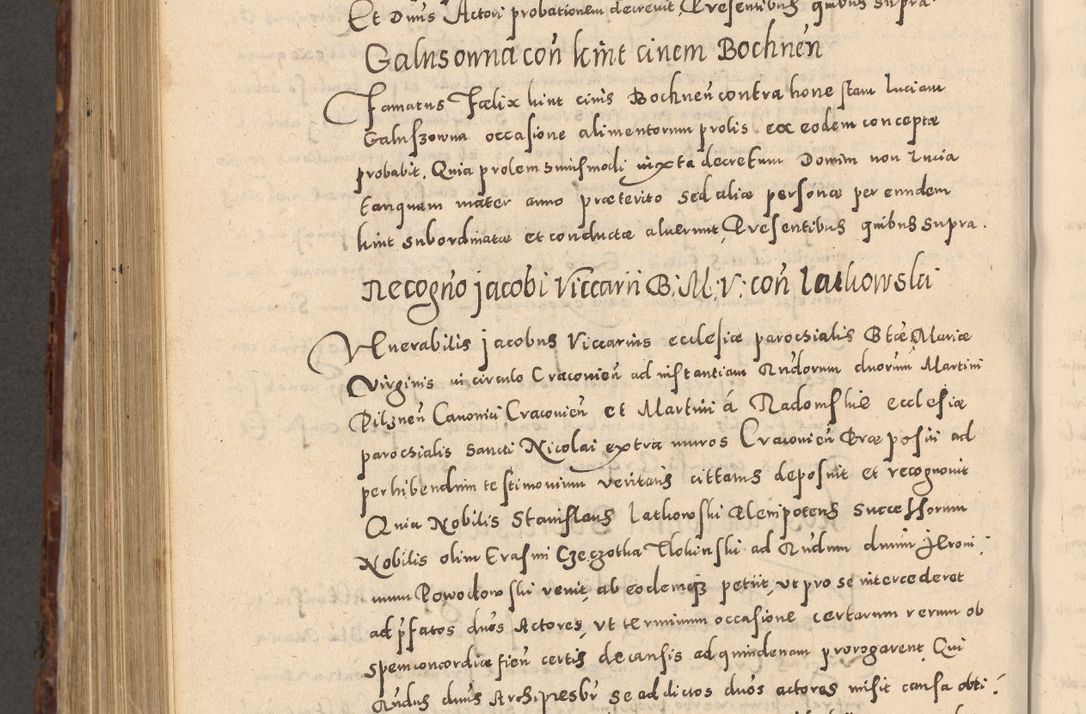 Et Dnus Actori probationem decrevit, Presentibus quibus supra.
Galus owna con kmt civem Bochnen
Famatus Fælix kmt civis Bochnen contra honestam Luciam
Galuszowna occasione alimentorum prolis ex eodem conceptæ
probabit. Quia prolem huiusmodi iuxta decretum Domini non Lucia
tanquam mater anno præterito sed aliæ personæ per eundem
kmt subordinatæ et conductæ aluerunt, Presentibus quibus supra.
Recogno Jacobi Viccarii B. M. V. con Latkowski
Venerabilis Jacobus Viccarius ecclesiæ parochialis Btæ Mariæ
Virginis in circulo Cracovien ad instantiam Rndorum duorum Martini
Pilznen Canonici Cracovien et Martini á Radomskie ecclesiæ
parochialis Sancti Nicolai extra muros Cracovien Præpositi ad
perhibendum testimonium veritatis cittatus deposuit et recognovit
Quia Nobilis Stanislaus Latkowski Plenipotens Successorum
Nobilis olim Erasmi Czeczotka Tlokinski ad Rndum dnum Hieroni:
mum Powodowski venit, ab eodemq petiit, ut pro se intercederet
ad pfatos dnos Actores, ut terminum occasione certarum rerum ob
spem concordiæ fien certis de causis ad quindenam prorogarent. Qui
Rndus dnus Archipresbr se ad dictos dnos actores misit causa obti: